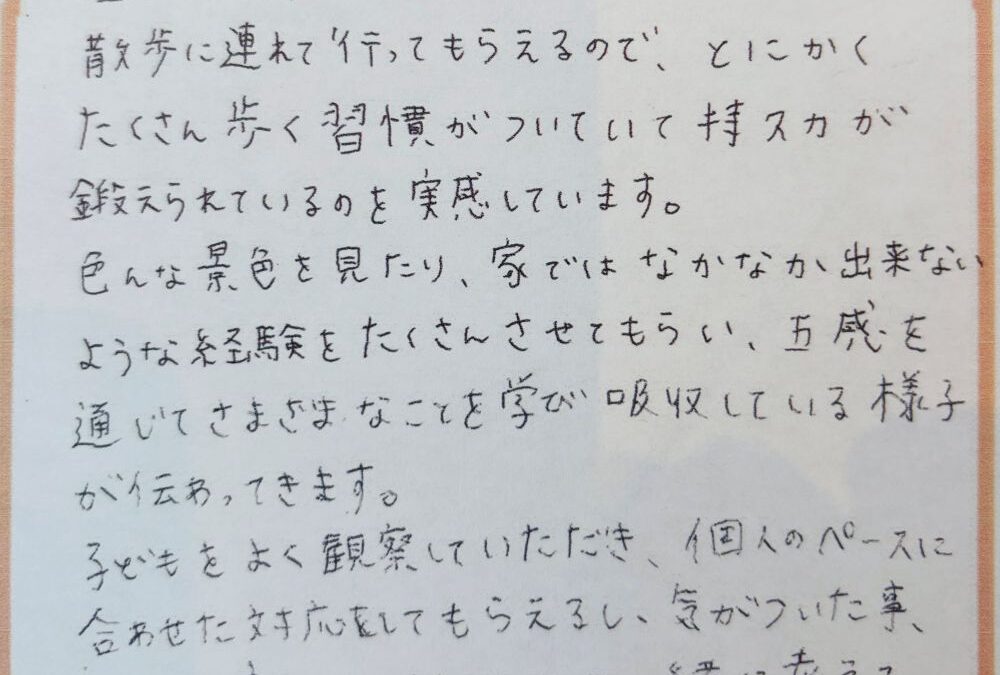 散歩に連れて行ってもらえるので、とにかく
たくさん歩く習慣がついていて持スカが
鍛えられているのを実感しています。
色んな景色を見たり、家ではなかなか出来ない
ような経験をたくさんさせてもらい、五感を
通じてさまざまなことを学び吸収している様子
が伝わってきます。
子どもをよく観察していただき、個人のペースに
合わせた対応をしてもらえるし、気がついた事、
緒に考えて